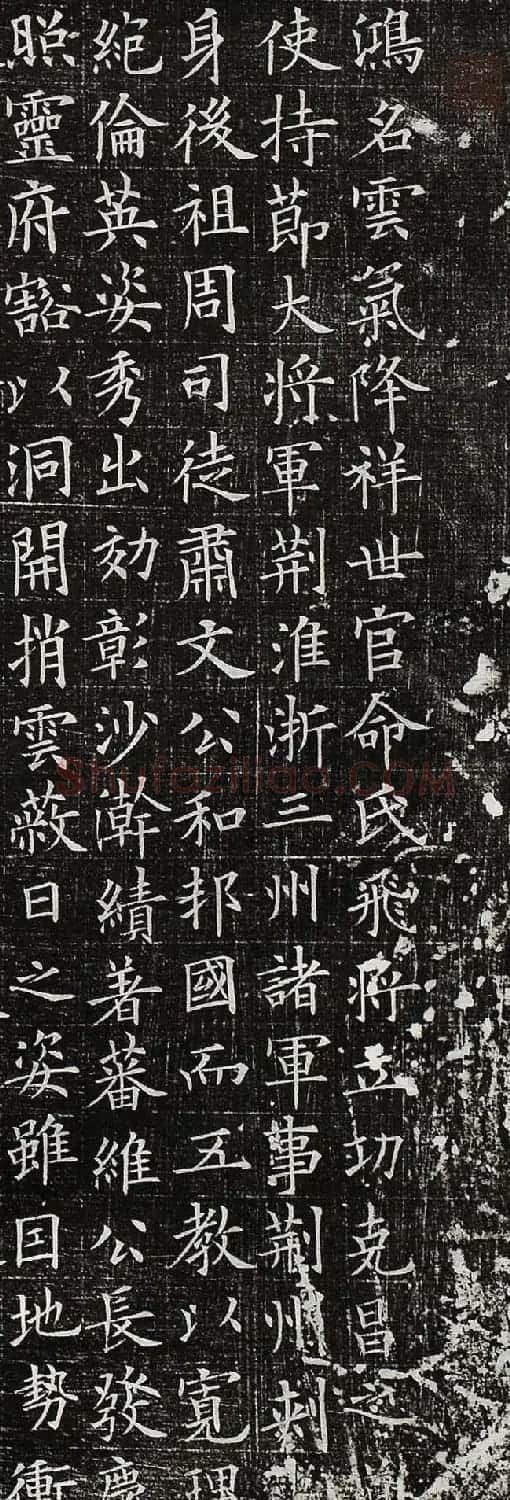 鴻名雲氣降祥世官命氏飛將立功克昌之
使持節大將軍荊淮浙三州諸軍事荊州刺
身後祖周司徒肅文公和邦國而五教以寬
絕倫英姿秀出効彰沙漧績著蕃維公長發慶
照靈府豁以洞開捎雲蔽日之姿雖因地勢衝
Shufaziliao.COM